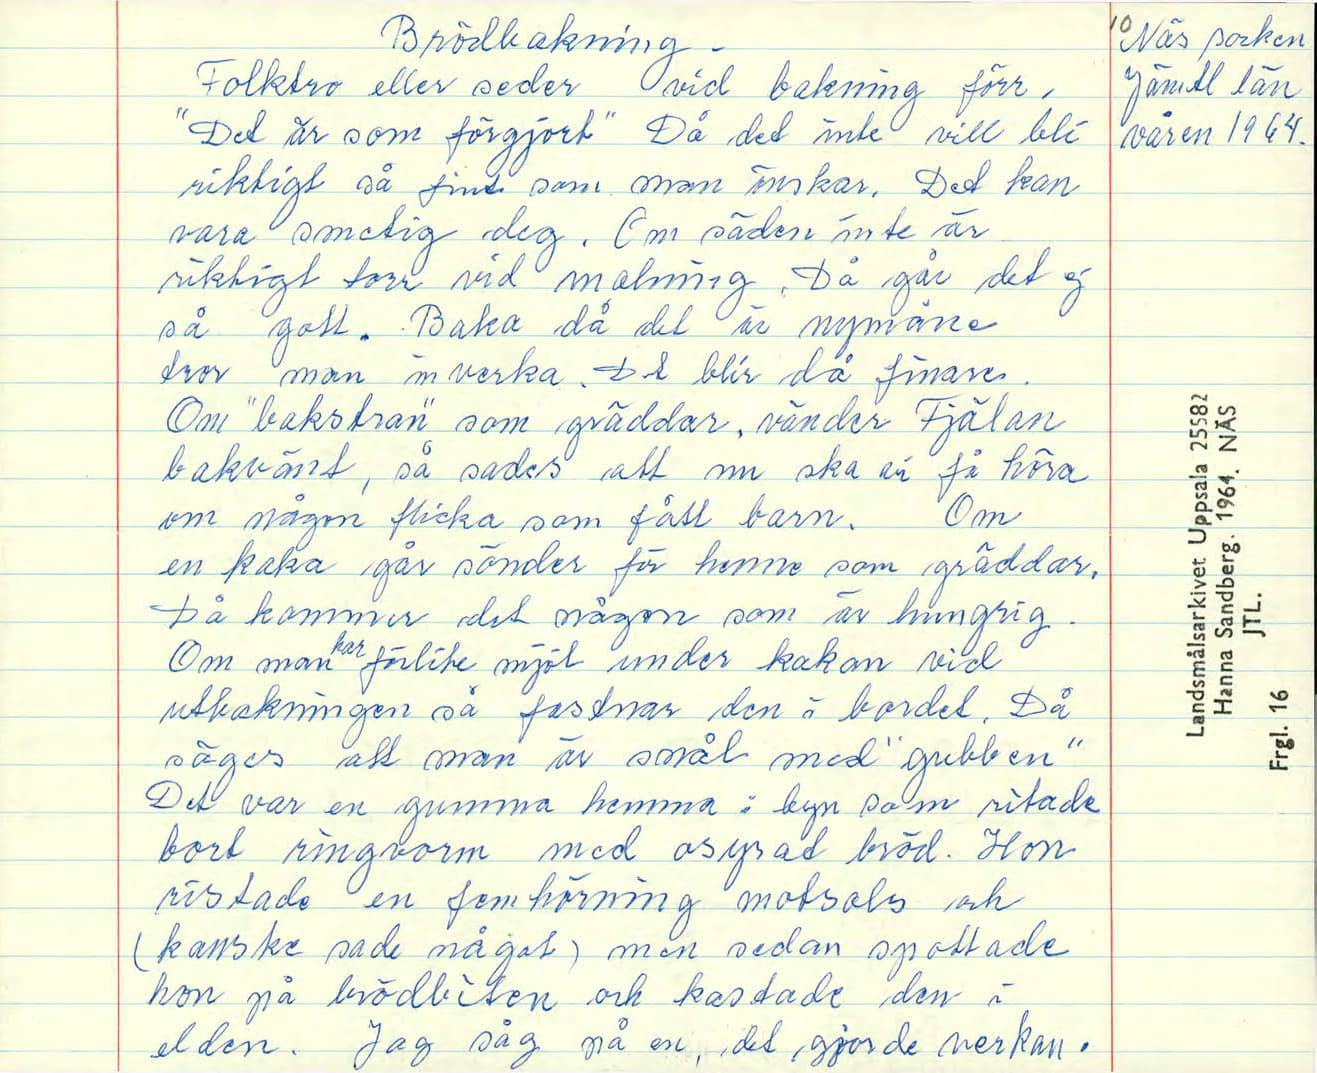 Brödbakning -
Folktro eller seder vid bakning förr.
"Det är som förgjort" Då det inte vill bli
riktigt så fint som man önskar. Det kan
vara smetig deg. Om säden inte är
riktigt torr vid malning. Då går det ej
så gott. Baka då det är nymåne
tror man inverka. Det blir då finare.
Om "bakstran" som gräddar, vänder Fjälan
bakvänt, så sades att nu ska vi få höra
om någon flicka som fått barn. Om
en kaka går sönder för henne som gräddar.
Då kommer det någon som är hungrig.
Om man har förlite mjöl under kakan vid
utbakningen så fastnar den i bordet. Då
säges att man är snål med "gubben"
Det var en gumma hemma i byn som ritade
bort ringvorm med osyrat bröd. Hon
ristade en femhörning motsols och
(kanske sade något) men sedan spottade
hon på brödbiten och kastade den i
elden. Jag såg på en, det gjorde verkan.
10
Näs socken
Jämtl län
våren 1964.
Landsmålsarkivet Uppsala 25582
Hanna Sandberg. 1964. NÄS
JTL.
Frgl. 16